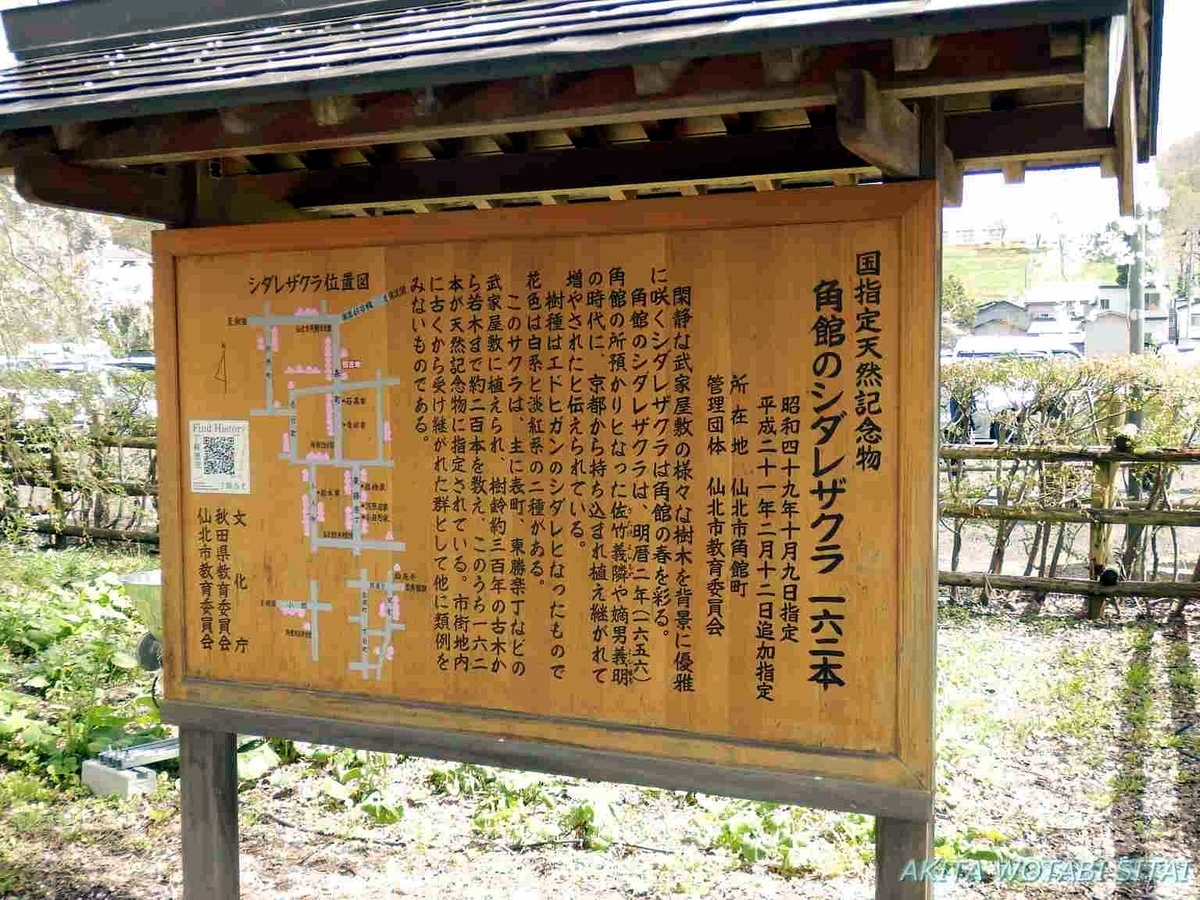 国指定天然記念物
角館のシダレザクラ 一六二本
昭和四十九年十月九日指定
平成二十一年二月十二日追加指定
所在地 仙北市角館町
管理団体 仙北市教育委員会
閑静な武家屋敷の様々な樹木を背景に優雅
に咲くシダレザクラは角館の春を彩る。
角館のシダレザクラは、明暦二年(一六五六)
角館の所預かりとなった佐竹義隣や嫡男義明
の時代に、京都から持ち込まれ植え継がれて
増やされたと伝えられている。
樹種はエドヒガンのシダレとなったもので
花色は白系と淡紅系の二種がある。
このサクラは、主に表町、東勝楽丁などの
武家屋敷に植えられ、樹齢約三百年の古木か
ら若木まで約二百本を数え、このうち一六二
本が天然記念物に指定されている。市街地内
に古くから受け継がれた群として他に類例を
みないものである。
シダレザクラ位置図
Find History
文化庁
秋田県教育委員会
仙北市教育委員会
AKITA WOTABI SITAI